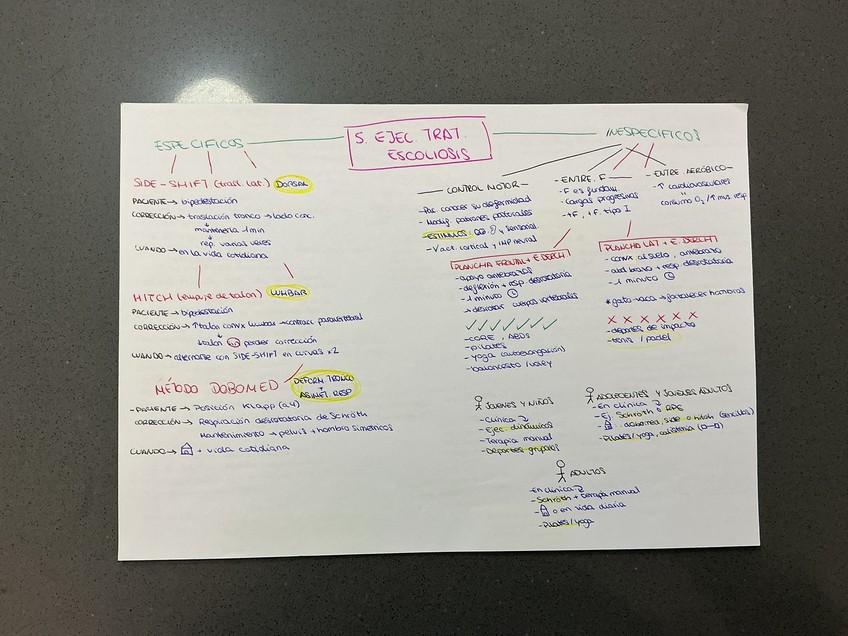 5. EJEC. TRAT.
ESCOLIOSIS
ESPECIFICOS
SIDE-SHIFT (trasl. lat.) DORSAL
PACIENTE → bipedestación
CORRECCIÓN → traslación tronco → lado conc.
↓
mantenerla 1 min
↓
rep. varias veces
CUANDO → en la vida cotidiana
HITCH (empuje de talón) LUMBAR
PACIENTE → bipedestación
CORRECCIÓN → ↑ talón convx lumbar → contracc paravertebral
↓
talón sin perder corrección
CUANDO → alternarse con SIDE-SHIFT en curvas x2
MÉTODO DOBOMED DEFORM. TRONCO
+
ASIMET. RESP
- PACIENTE → Posición Klapp (a 4)
CORRECCIÓN → Respiración desrotatoria de Schroth
Mantenimiento → pelvis + hombro simétricos
CUANDO → + vida cotidiana
INESPECIFICOS
- CONTROL MOTOR -
- Pac. conocer su deformidad
- Modif. patrones posturales
- ESTIMULOS: y sensorial
- √ act. cortical y IMP neural
- ENTRE. F -
- F es fundam.
- Cargas progresivas
- +F, +F. tipo I
- ENTRE AERÓBICO -
- ↑ cardiovasculares
consumo O₂ / ↑ mus resp.
PLANCHA FRONTAL + E. DERCH
- apoyo antebrazos
- deflexión + resp. desrotatoria
- 1 minuto
→ desrotar cuerpos vertebrales
✓ ✓ ✓ ✓ ✓ ✓ ✓
- CORE, ABDS
- pilates
- yoga (autoelongación)
- baloncesto / voley
PLANCHA LAT + E. DERCH
- convx al suelo, antebrazo
- abd brazo + resp. desrotatoria
- 1 minuto
* gato-vaca → fortalecer hombros
X X X X X X
- deportes de impacto
- tenis / padel
JOVENES Y NIÑOS
- Clínica
- Ejec. dinámicos
- Terapia manual
- Deportes grupales
ADOLECENTES Y JOVENES ADULTOS
- En clínica
- Ej. Schroth o RPE
- dobomed, side o hitch (sencillos)
- Pilates / yoga, calistenia
ADULTOS
- En clínica
- Schroth + terapia manual
- o en vida diaria
- Pilates / yoga